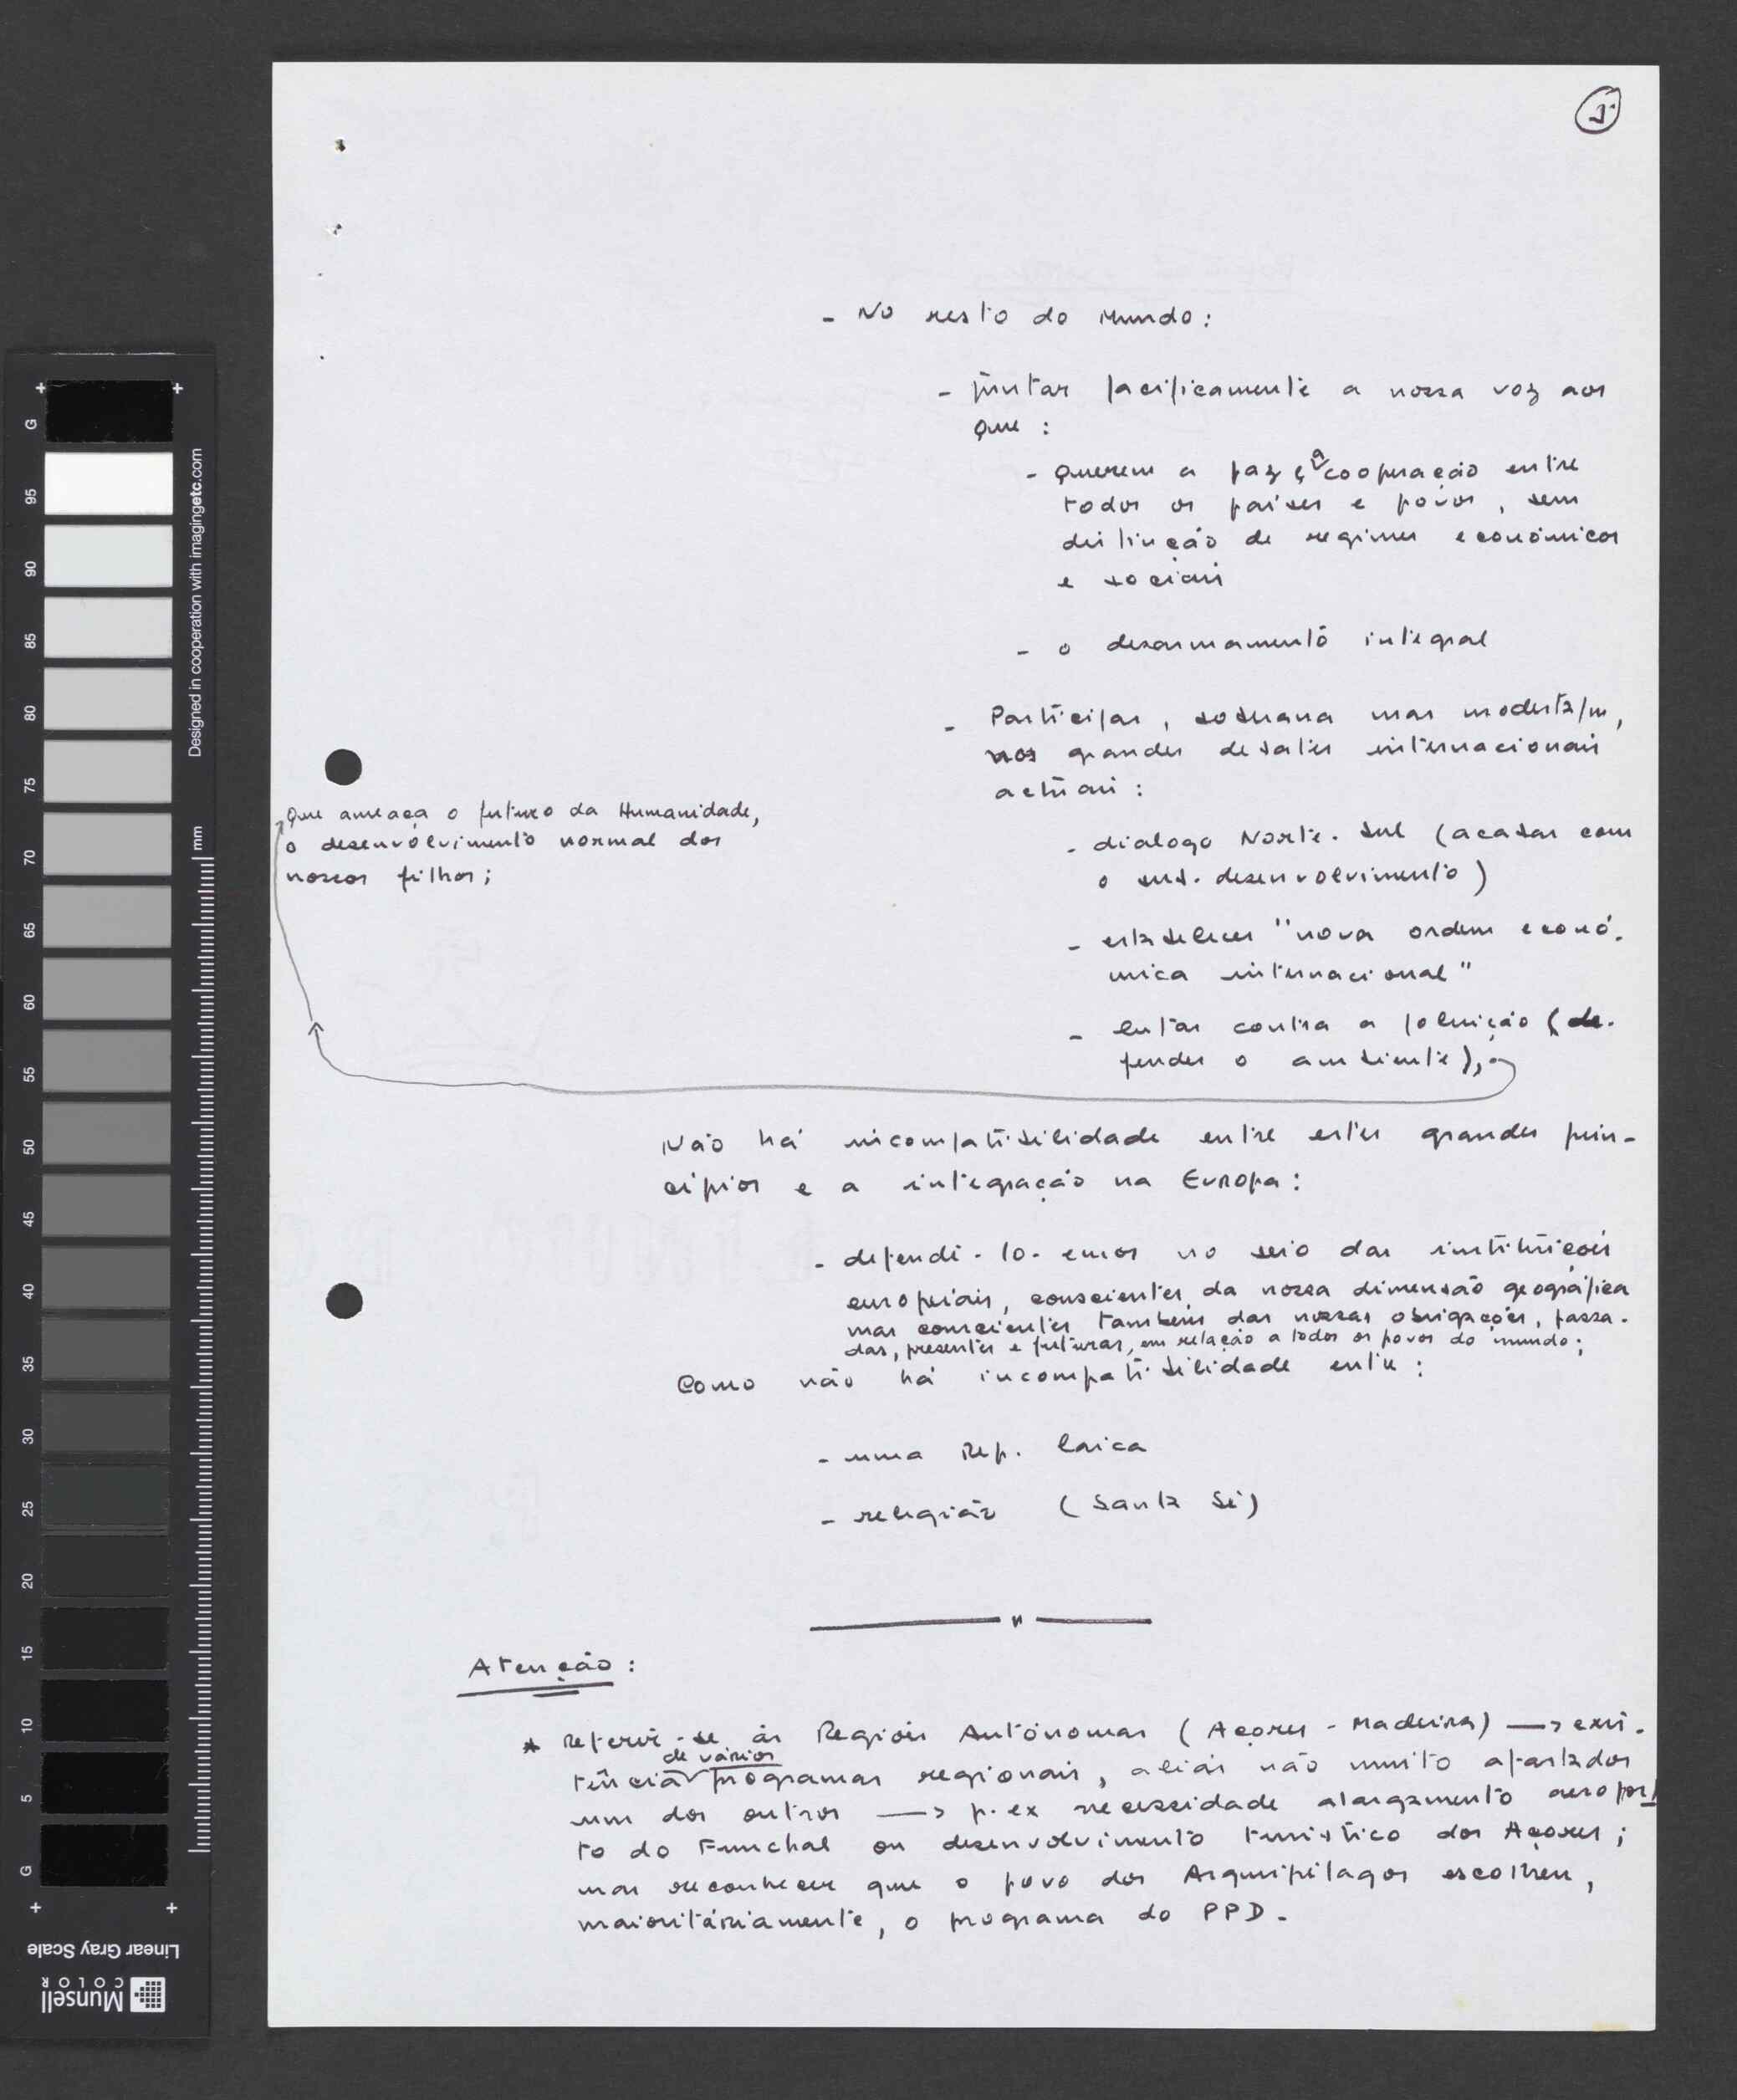 5
- No resto do Mundo:
- juntar pacificamente a nossa voz aos
que :
- querem a paz e a cooperação entre
todos os países e povos, sem
distinção de regimes económicos
e sociais
- o desarmamento integral
- Participar, soberana mas modesta/m,
nos grandes debates internacionais
actuais :
- dialogo Norte-Sul (acabar com
o sub-desenvolvimento)
- estabelecer "nova ordem econó-
mica internacional"
- lutar contra a poluição (de-
fender o ambiente),
que ameaça o futuro da Humanidade,
o desenvolvimento normal dos
nossos filhos;
Não há incompatibilidade entre estes grandes prin-
cípios e a integração na Europa:
- defendê-los-emos no seio das instituições
europeias, conscientes da nossa dimensão geográfica
mas conscientes também das nossas obrigações, passa-
das, presentes e futuras, em relação a todos os povos do mundo;
Como não há incompatibilidade entre :
- uma Rep. laica
- religião (Santa Sé)
Atenção :
* Referir-se às Regiões Autónomas (Açores - Madeira) → exis-
tência de vários programas regionais, aliás não muito afastados
um dos outros → p. ex necessidade alargamento aeropor-
to do Funchal ou desenvolvimento turístico dos Açores ;
mas reconhecer que o povo dos Arquipélagos escolheu,
maioritáriamente, o programa do PPD.
G
95
90
85
80
75
70
65
60
55
50
45
40
35
30
25
20
15
10
5
G
Designed in cooperation with imagingetc.com
mm
Linear Gray Scale
Munsell
COLOR